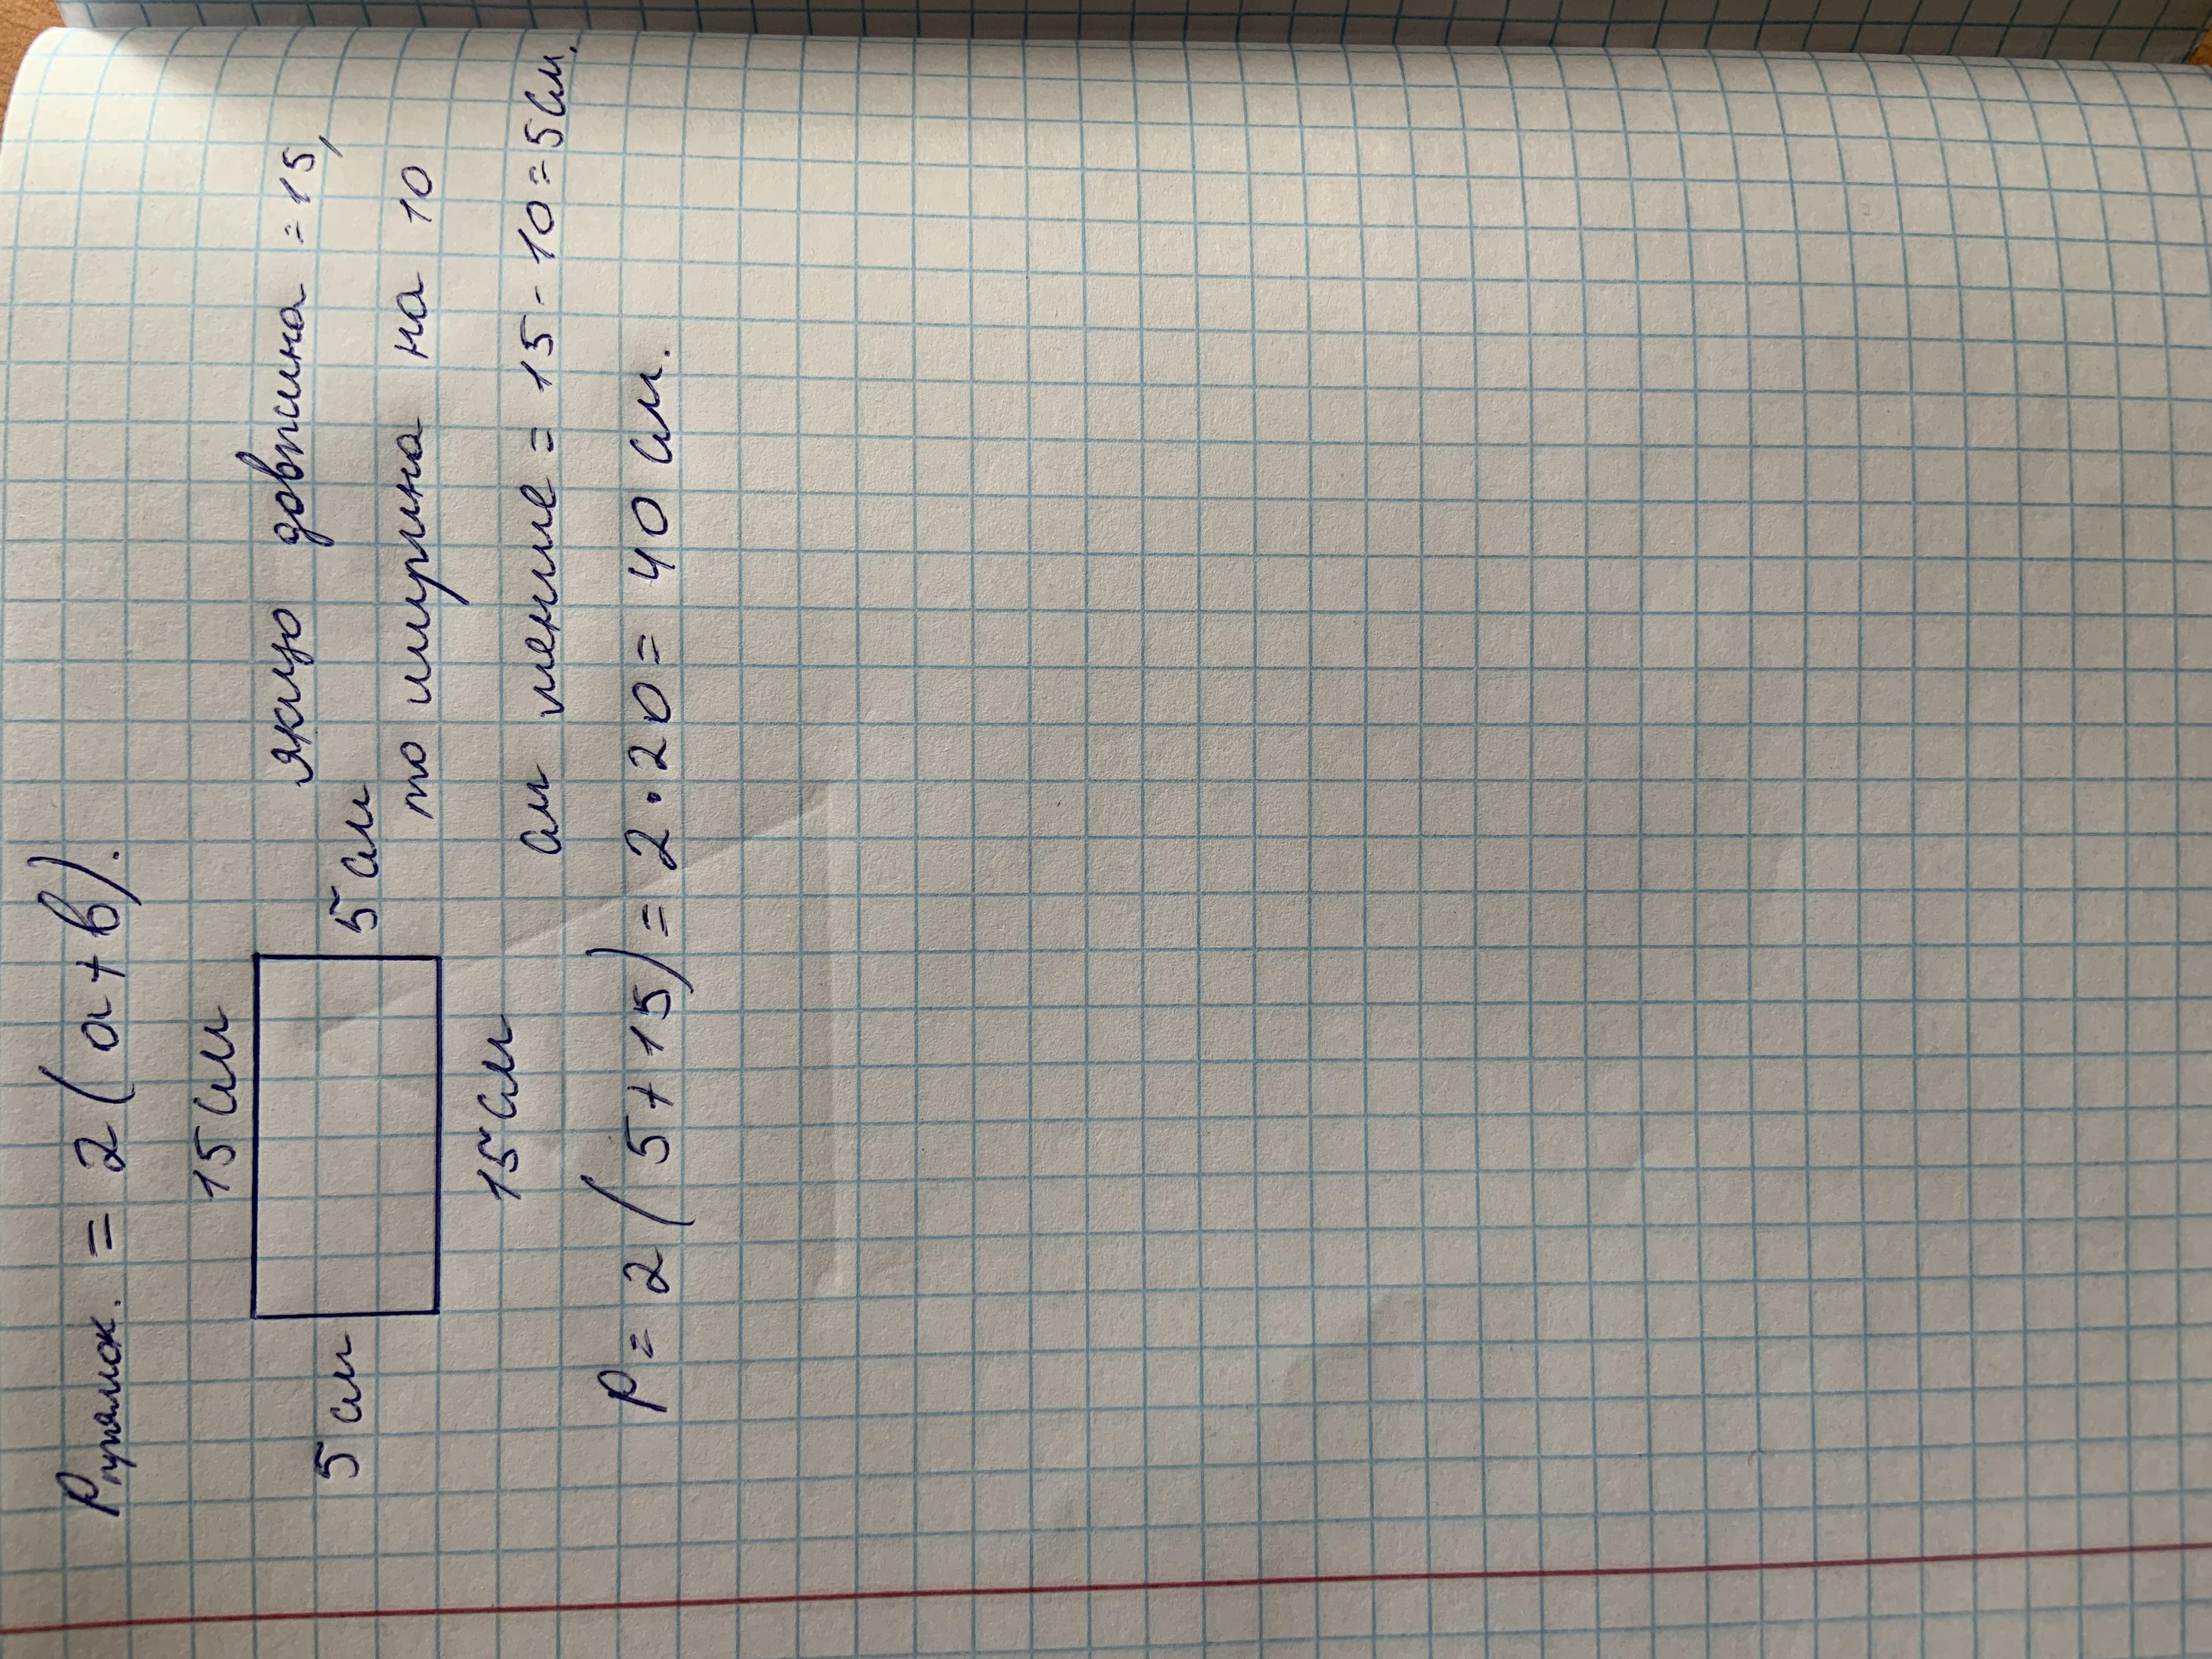 Pпрямок. = 2 ( a + b ).
15 см
якщо довжина = 15,
5 см
5 см
то ширина на 10
15 см
см менше = 15 - 10 = 5 см.
P = 2 ( 5 + 15 ) = 2 · 20 = 40 см.